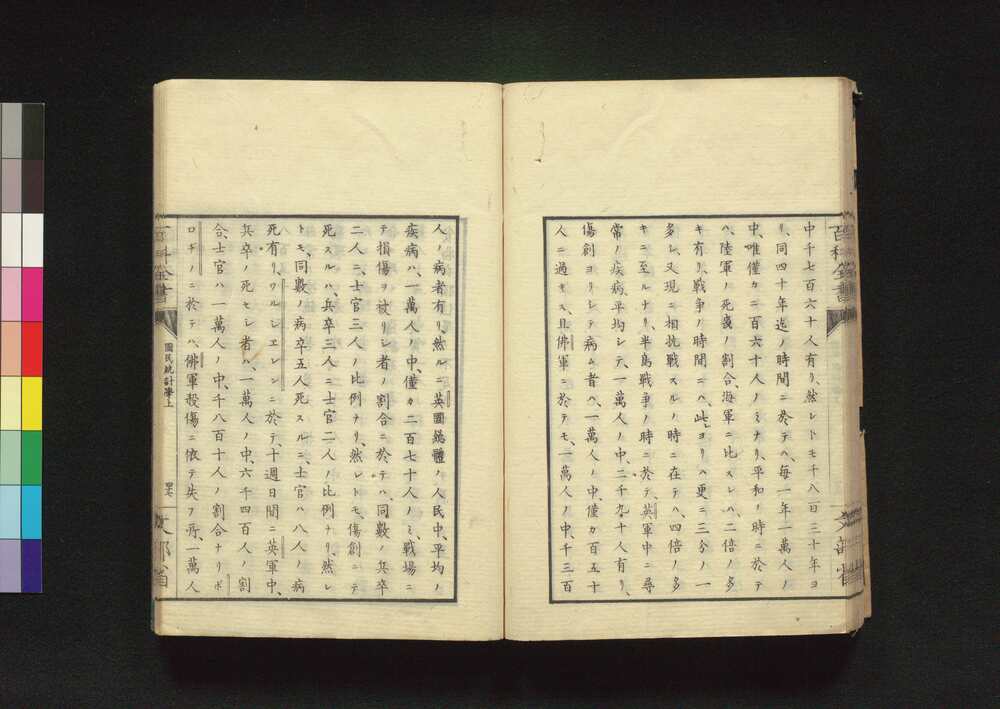 中千七百六十人有リ、然レトモ千八百三十年ヨ
リ、同四十年迄ノ時間ニ於テハ、毎一年一萬人ノ
中、唯僅カニ百六十人ノミナリ、平和ノ時ニ於テ
ハ、陸軍ノ死喪ノ割合、海軍ニ比スレハ、二倍ノ多
キ有リ、戦争ノ時間ニハ、此ヨリハ更ニ三分ノ一
多シ、又現ニ相抗戦スルノ時ニ在テハ、四倍ノ多
キニ至ルナリ、半島戦争ノ時ニ於テ、英軍中ニ尋
常ノ疾病、平均シテ、一萬人ノ中、二千九十人有リ、
傷創ヨリシテ病ム者ハ、一萬人ノ中、僅カ百五十
人ニ過キス、且佛軍ニ於テモ、一萬人ノ中、千三百
百科全書
文部省
人ノ病者有リ、然ルニ英國緫體ノ人民中、平均ノ
疾病ハ、一萬人ノ中、僅カ二百七十人ノミ、戦場ニ
テ損傷ヲ被リシ者ノ割合ニ於テハ、同數ノ兵卒
二人ニ、士官三人ノ比例ナリ、然レトモ、傷創ニテ
死スルハ兵卒三人ニ士官二人ノ比例ナリ、然レ
トモ、同數ノ病卒五人死スルニ、士官ハ八人ノ病
死有リ、ワルシエレンニ於テ、十週日間ニ英軍中、
兵卒ノ死セシ者ハ、一萬人ノ中、六千四百人ノ割
合、士官ハ一萬人ノ中、千八百十人ノ割合ナリ、ボ
ロヂノニ於テハ、佛軍殺傷ニ依テ失フ所、一萬人
百科全書
國民統計學上
文部省